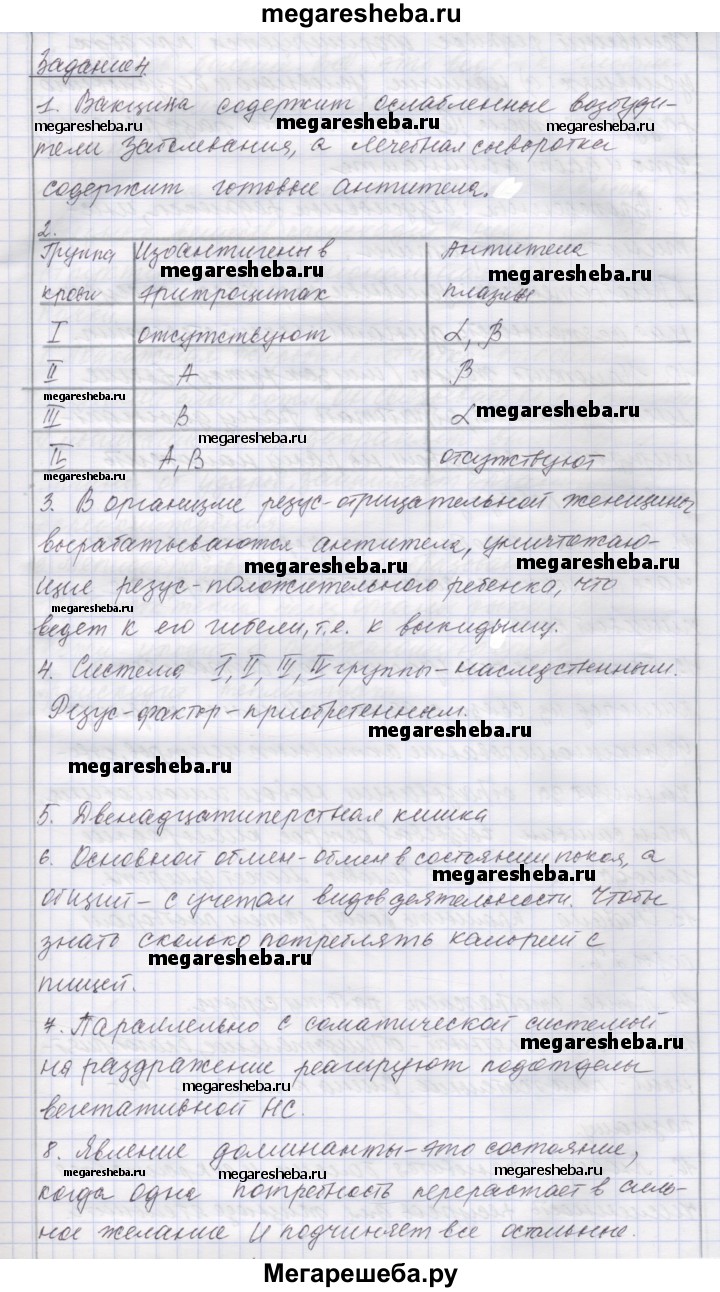 megaresheba.ru
Задание 4.
1. Вакцина содержит ослабленные возбуди-
megaresheba.ru megaresheba.ru megaresheba.ru
тели заболевания, а лечебная сыворотка
содержит готовые антитела.
2.
Группа Изоантигены в Антитела
megaresheba.ru megaresheba.ru
крови эритроцитах плазмы
I отсутствуют α, β
II A β
megaresheba.ru megaresheba.ru
III B α
megaresheba.ru
IV A, B отсутствуют
3. В организме резус-отрицательной женщины
вырабатываются антитела, уничтожаю-
megaresheba.ru megaresheba.ru
щие резус-положительного ребенка, что
megaresheba.ru
ведет к его гибели, т.е. к выкидышу.
4. Система I, II, III, IV группы - наследственным.
Резус-фактор - приобретенным.
megaresheba.ru
megaresheba.ru
5. Двенадцатиперстная кишка
6. Основной обмен - обмен в состоянии покоя, а
megaresheba.ru
общий - с учетом видов деятельности. Чтобы
знать сколько потреблять калорий с
megaresheba.ru
пищей.
7. Параллельно с соматической системой
megaresheba.ru
на раздражение реагируют подотделы
megaresheba.ru
вегетативной НС.
8. Явление доминанты - это состояние,
megaresheba.ru megaresheba.ru megaresheba.ru
когда одна потребность перерастает в силь-
ное желание и подчиняет все остальные.
Мегарешеба.ру